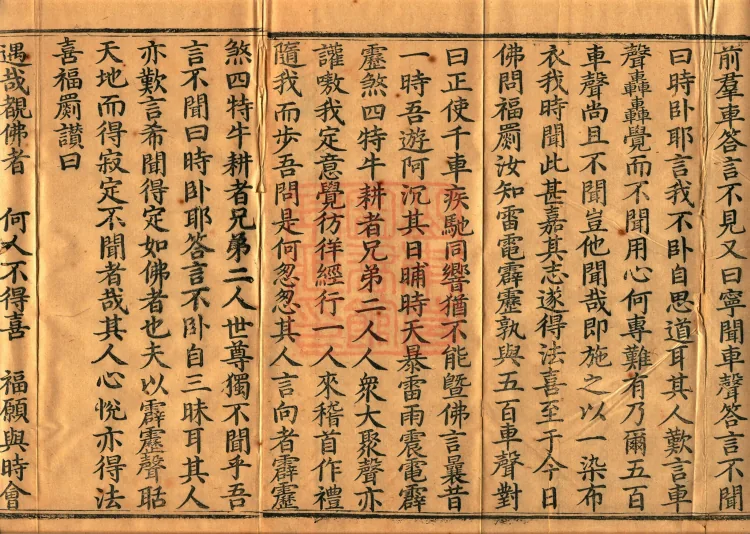 前羣車答言不見又曰寧聞車聲答言不聞
曰時卧耶言我不卧自思道耳其人歎言車
聲轟轟覺而不聞用心何專難有乃爾五百
車聲尚且不聞豈他聞哉即施之以一染布
衣我時聞此甚嘉其志遂得法喜至于今日
佛問福罽汝知雷電霹靂孰與五百車聲對
曰正使千車疾馳同響猶不能曁佛言曩昔
一時吾遊阿沉其日晡時天暴雷雨震電霹
靂煞四特牛耕者兄弟二人人衆大聚聲亦
讙嗷我定意覺彷徉經行一人來稽首作禮
隨我而步吾問是何怱怱其人言向者霹靂
煞四特牛耕者兄弟二人世尊獨不聞乎吾
言不聞曰時卧耶答言不卧自三昧耳其人
亦歎言希聞得定如佛者也夫以霹靂聲聒
天地而得寂定不聞者哉其人心悅亦得法
喜福罽讃曰
遇哉覩佛者　何人不得喜　福願與時會